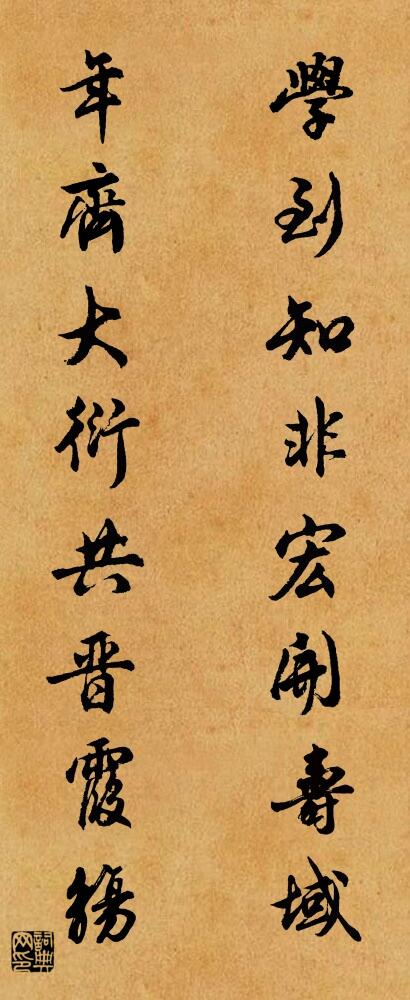 學到知非宏開壽域
年齊大衍共晋霞觴
詞典网印